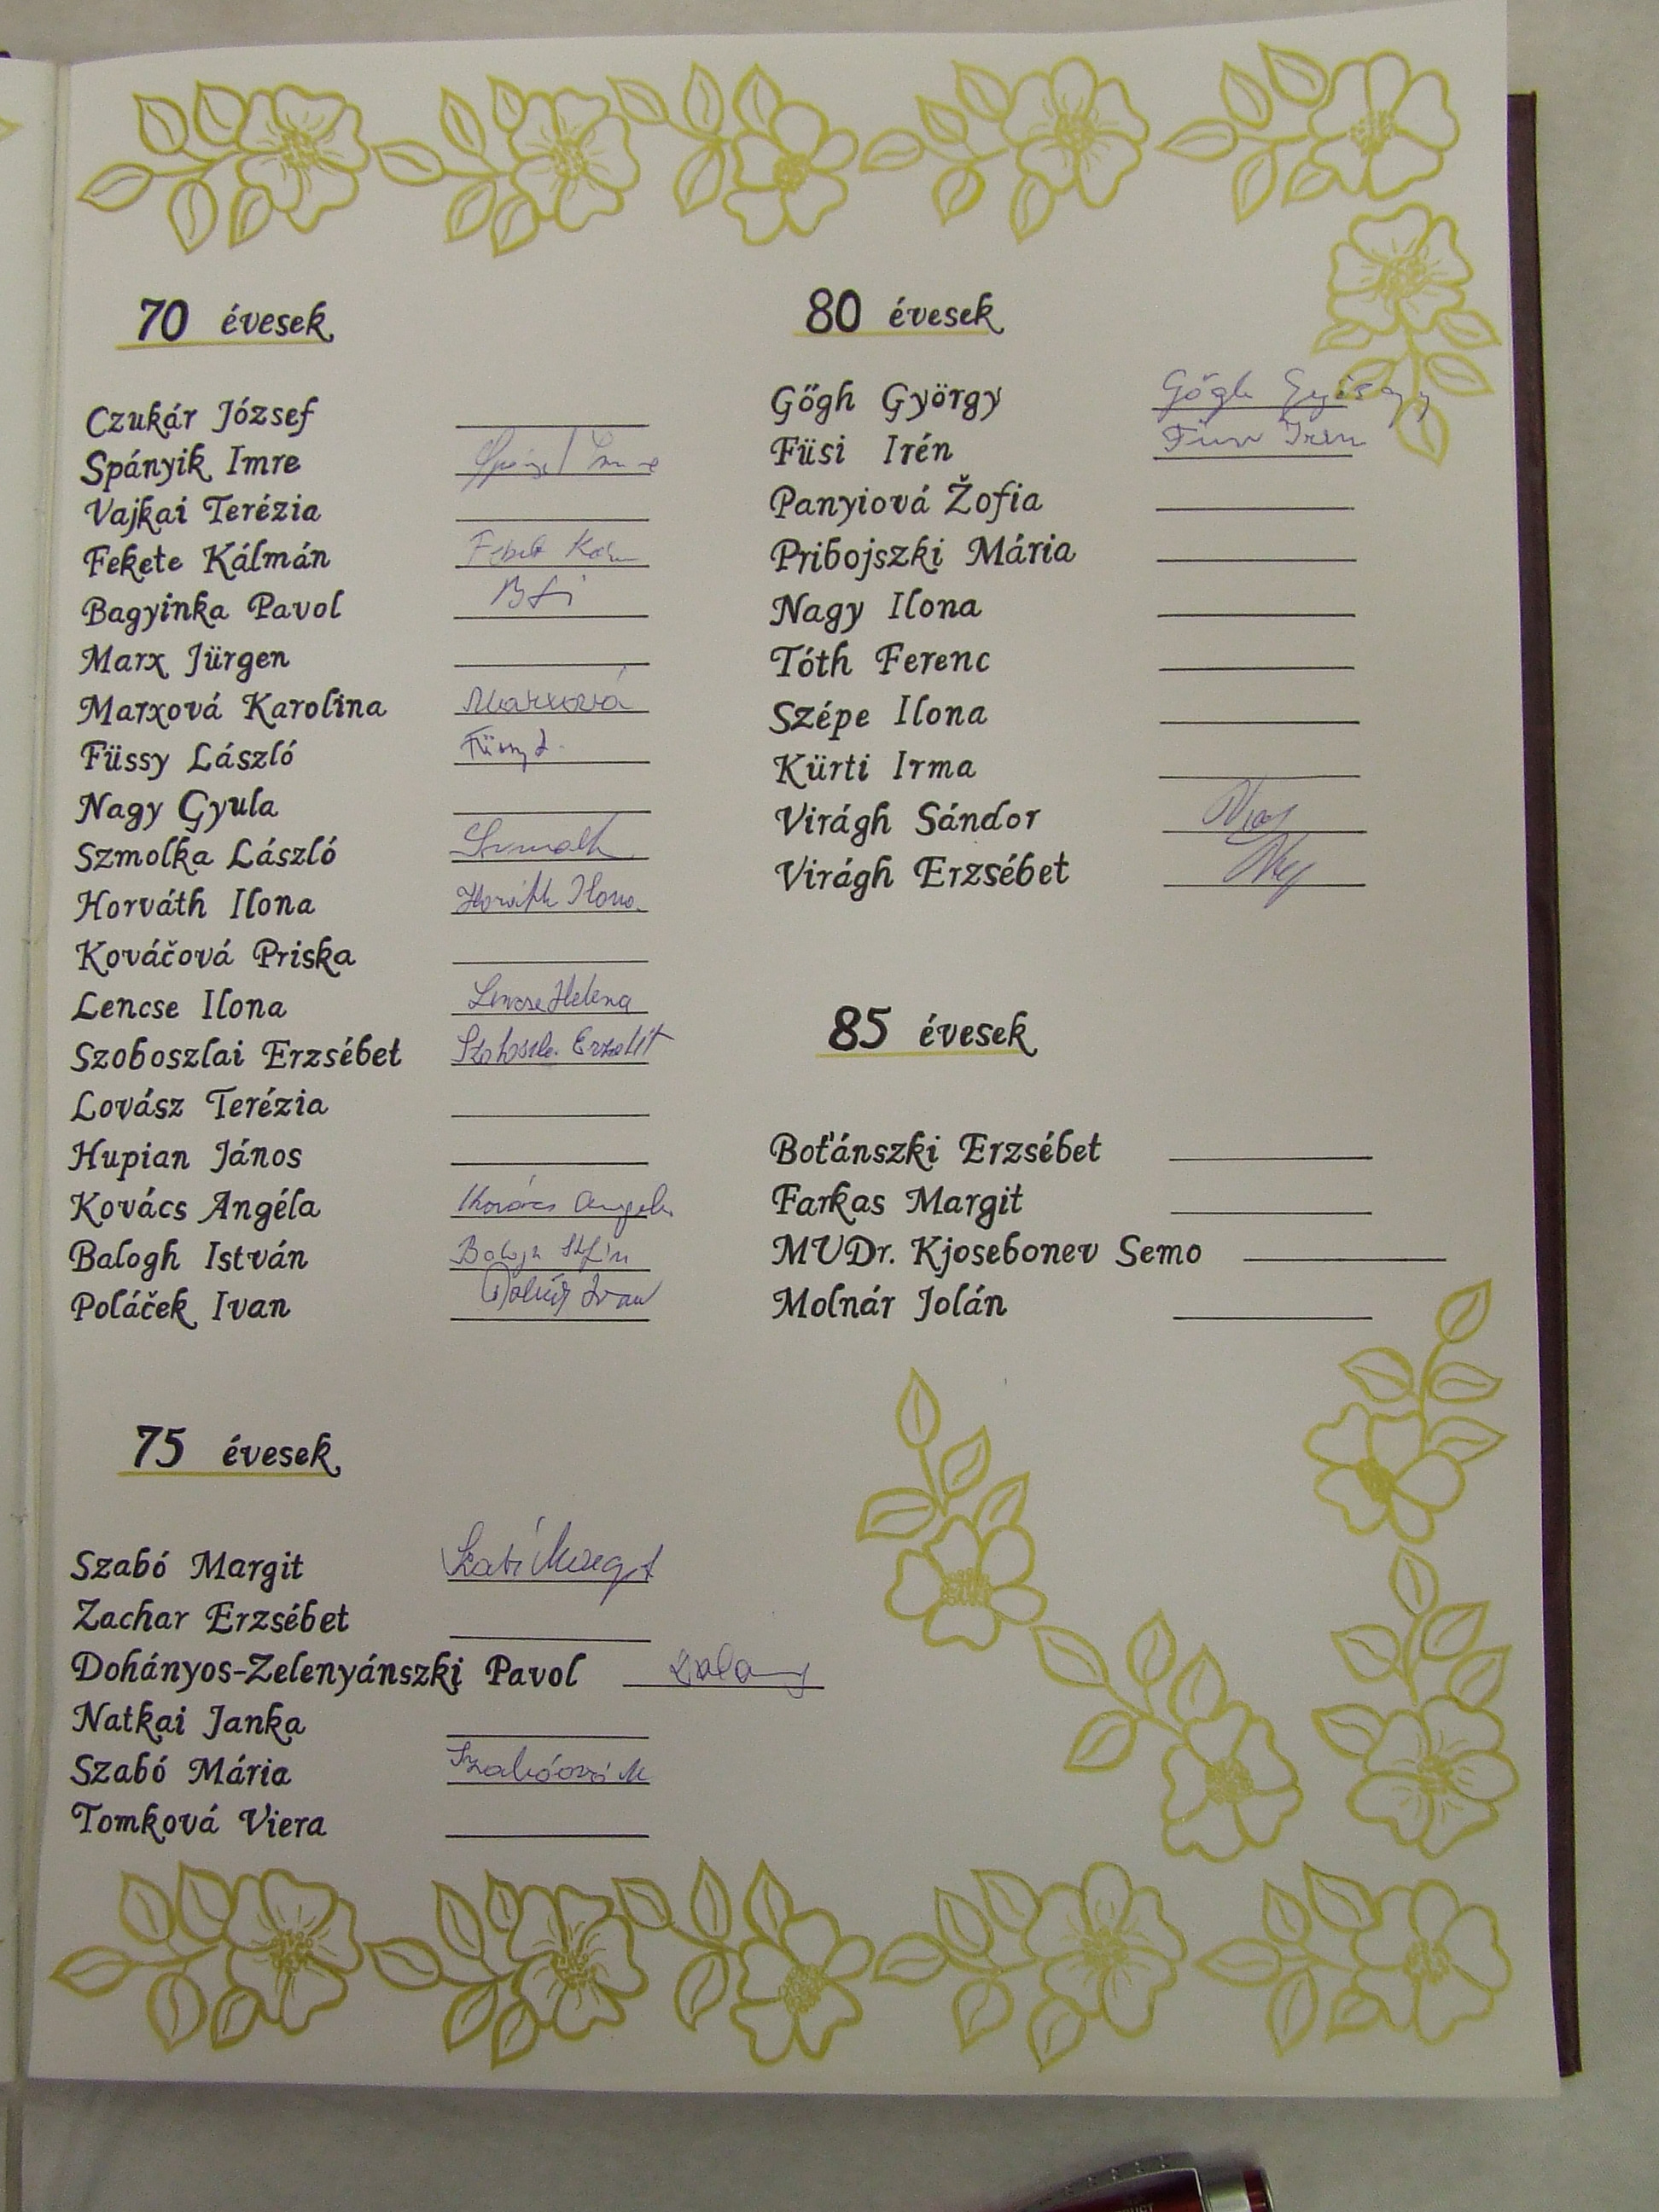 70 évesek
Czukár József
Spányik Imre
Vajkai Terézia
Fekete Kálmán
Bagyinka Pavol
Marx Jürgen
Marxová Karolina Marxová
Füssy László Füssy L.
Nagy Gyula
Szmolka László
Horváth Ilona Horváth Ilona
Kováčová Priska
Lencse Ilona Lencse Helena
Szoboszlai Erzsébet
Lovász Terézia
Hupian János
Kovács Angéla Kovács Angela
Balogh István
Poláček Ivan Ivan
75 évesek
Szabó Margit Szabó Margit
Zachar Erzsébet
Dohányos-Zelenyánszki Pavol
Natkai Janka
Szabó Mária Szabóová M
Tomková Viera
80 évesek
Gőgh György Gőgh György
Füsi Irén Irén
Panyiová Žofia
Pribojszki Mária
Nagy Ilona
Tóth Ferenc
Szépe Ilona
Kürti Irma
Virágh Sándor
Virágh Erzsébet
85 évesek
Boťánszki Erzsébet
Farkas Margit
MUDr. Kjosebonev Semo
Molnár Jolán